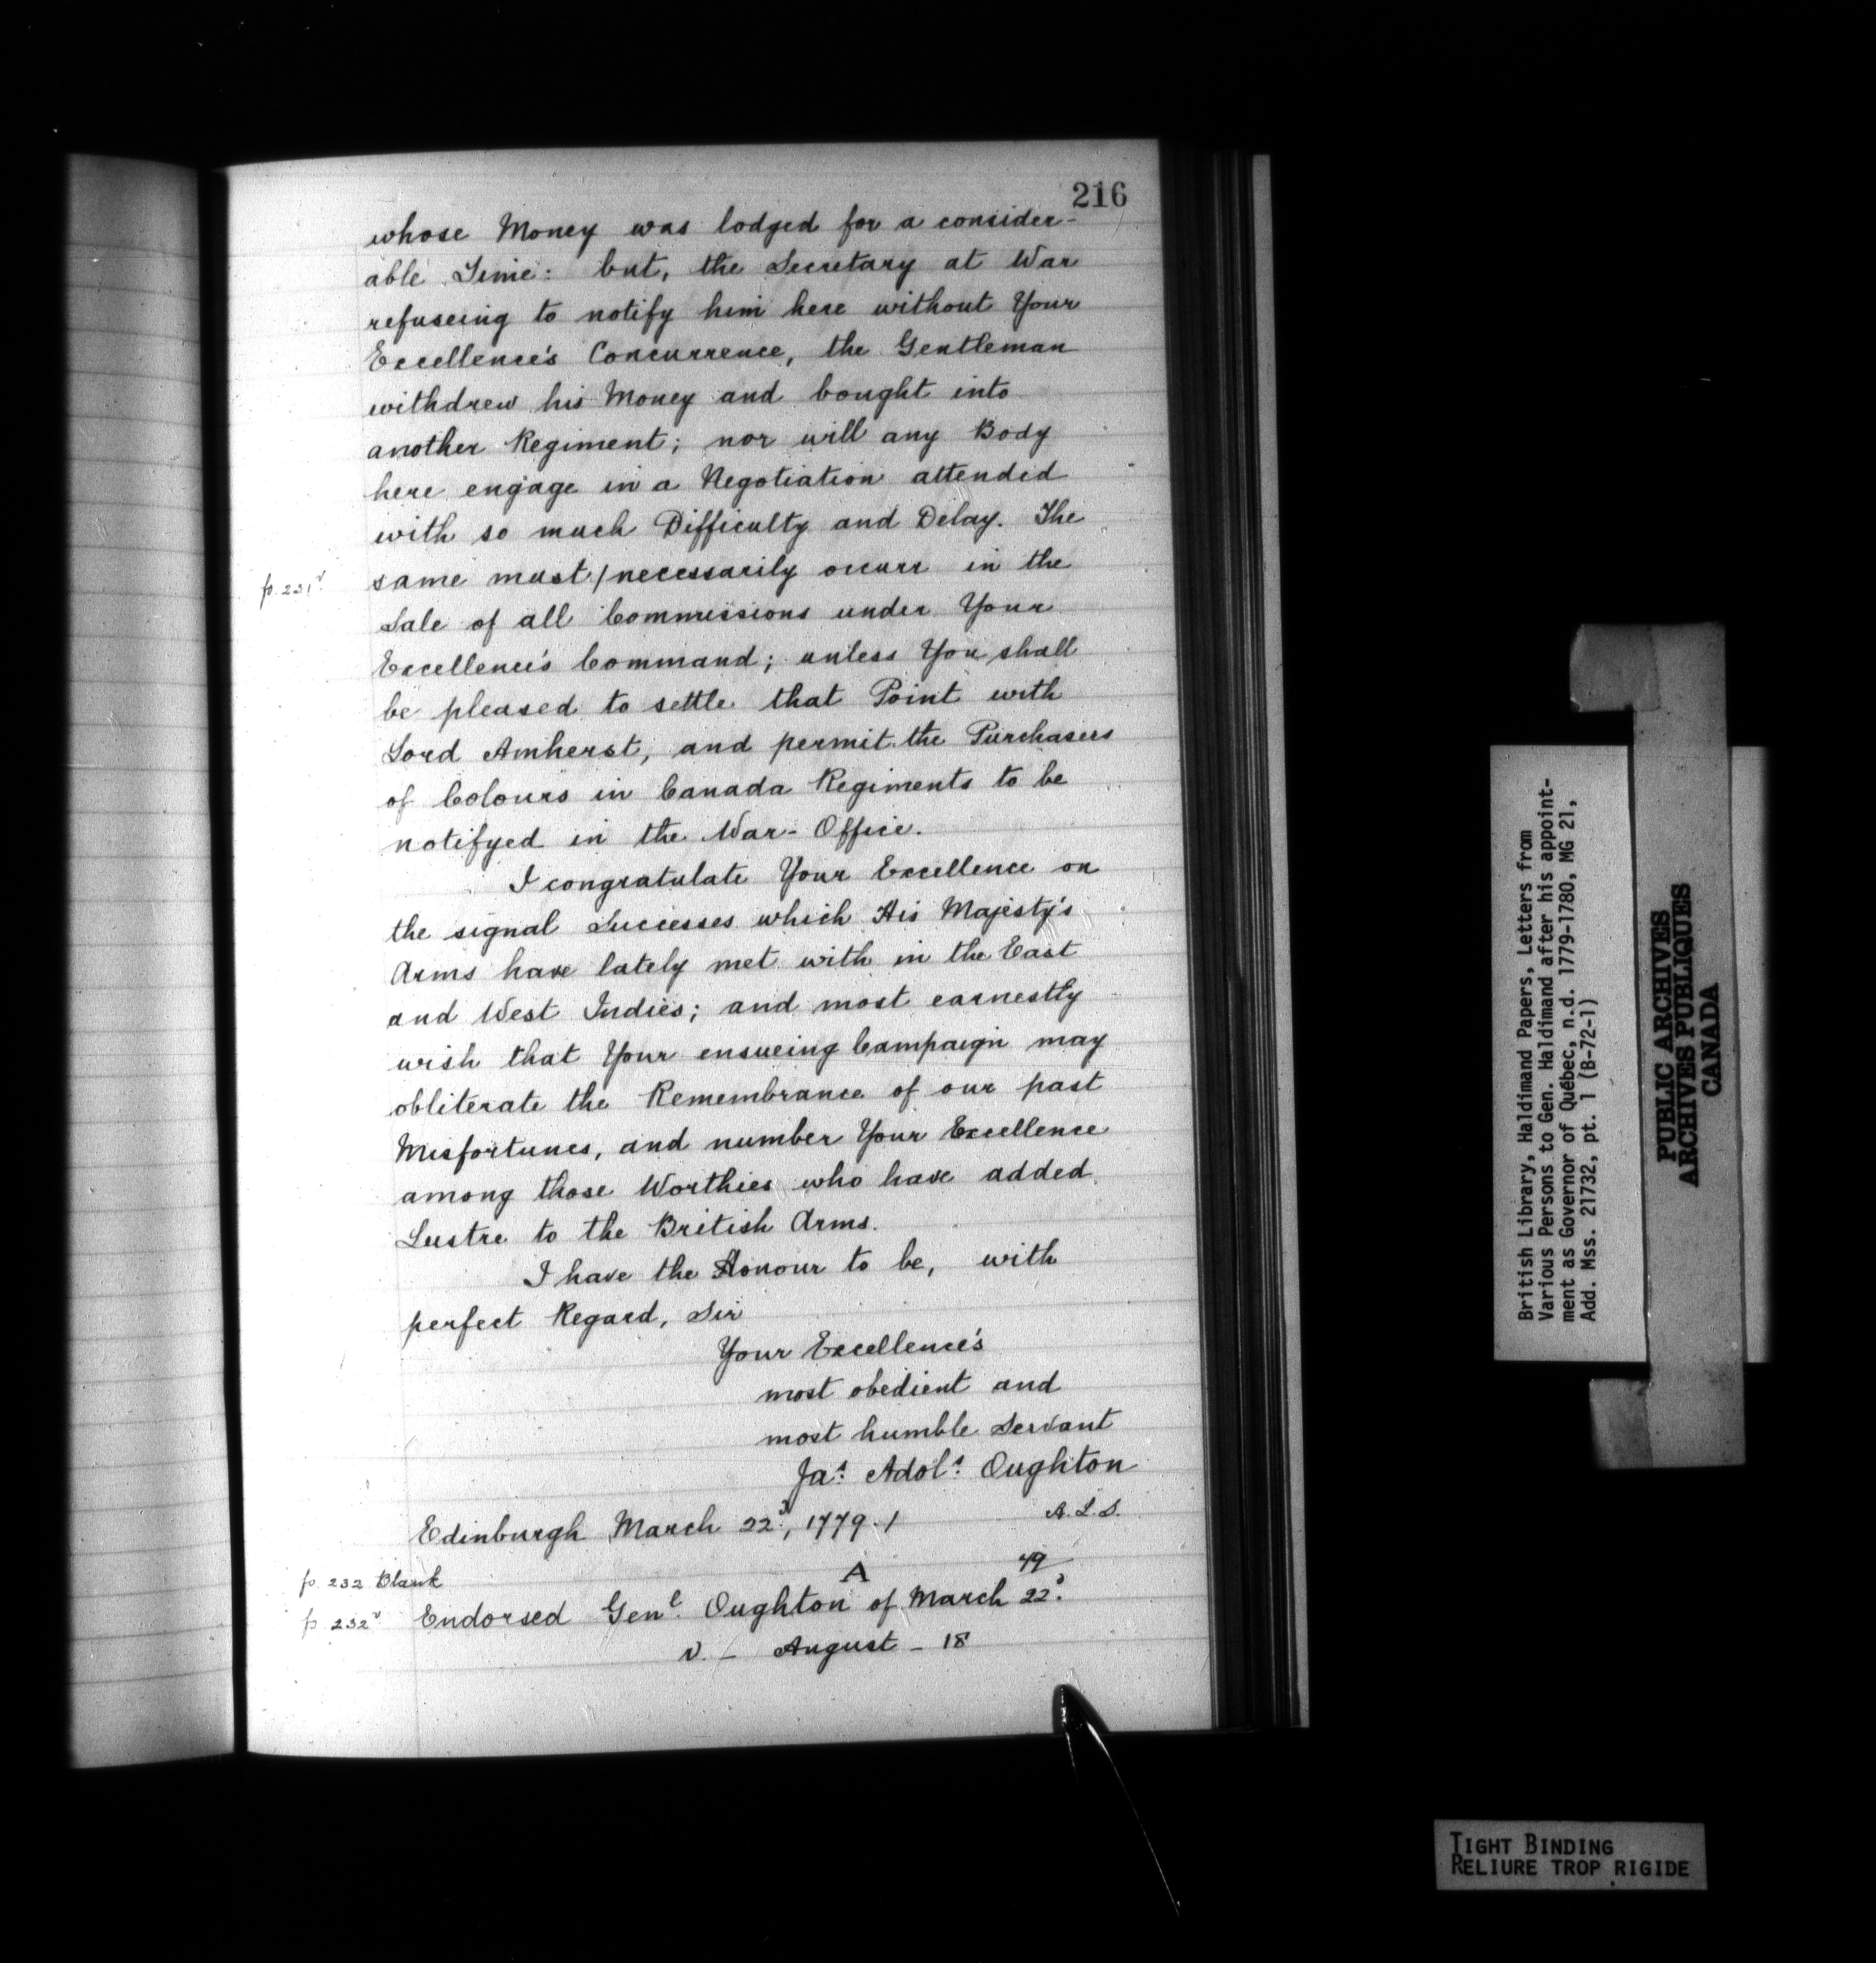 216
whose Money was lodged for a consider-
able Time: but, the Secretary at War
refuseing to notify him here without Your
Excellence's Concurrence, the Gentleman
withdrew his Money and bought into
another Regiment; nor will any Body
here engage in a Negotiation attended
with so much Difficulty and Delay. The
fo. 231v same must/necessarily occurr in the
Sale of all Commissions under Your
Excellence's Command; unless You shall
be pleased to settle that Point with
Lord Amherst, and permit the Purchasers
of Colours in Canada Regiments to be
notifyed in the War-Office.
I congratulate Your Excellence on
the signal Successes which His Majesty's
Arms have lately met with in the East
and West Indies; and most earnestly
wish that Your ensueing Campaign may
obliterate the Remembrance of our past
Misfortunes, and number Your Excellence
among those Worthies who have added
Lustre to the British Arms.
I have the Honour to be, with
perfect Regard, Sir
Your Excellence's
most obedient and
most humble Servant
Jas. Adols. Oughton
Edinburgh March 22d, 1779./ A.L.S.
fo. 232 Blank
A 79
fo. 232v Endorsed Genl. Oughton of March 22d.
August - 18
British Library, Haldimand Papers, Letters from
Various Persons to Gen. Haldimand after his appoint-
ment as Governor of Québec, n.d. 1779-1780, MG 21,
Add. Mss. 21732, pt. 1 (B-72-1)
PUBLIC ARCHIVES
ARCHIVES PUBLIQUES
CANADA
TIGHT BINDING
RELIURE TROP RIGIDE